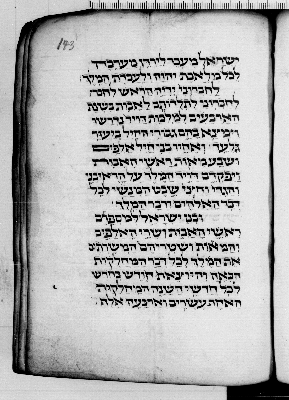 143
ישראל מעבר לירדן מערבה
לכל מלאכת יהוה ולעבדת המלך
לחברוני יריה הראש
לחברוני לתלדתיו לאבות בשנת
הארבעים למלכות דויד נדרשו
וימצא בהם גבורי חיל ביעזיר
גלעד ואחיו בני חיל אלפים
ושבע מאות ראשי האבות
ויפקידם דויד המלך על הראובני
והגדי וחצי שבט המנשי לכל
דבר האלהים ודבר המלך
ובני ישראל למספרם
ראשי האבות ושרי האלפים
והמאות ושטריהם המשרתים
את המלך לכל דבר המחלקות
הבאה והיצאת חדש בחדש
לכל חדשי השנה המחלקת
האחת עשרים וארבעה אלף